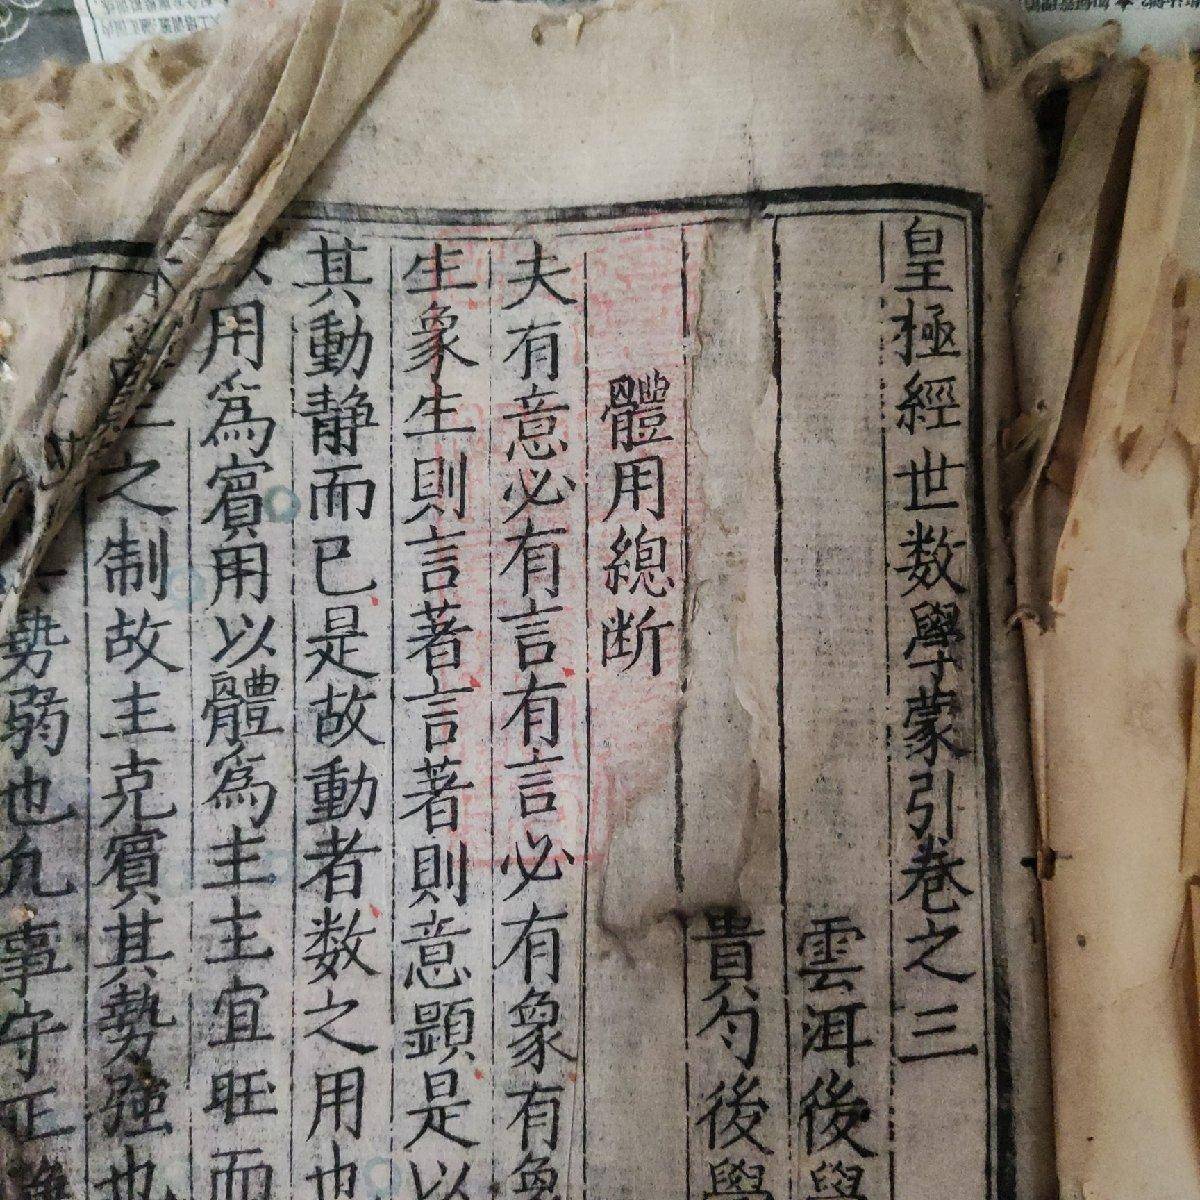 皇極經世数學蒙引卷之三
雲洱後學
貴勺後學
體用總断
夫有意必有言有言必有象有象
生象生則言著言著則意顕是以
其動静而已是故動者数之用也
用爲賓用以體爲主主宜旺而
之制故主克賓其勢強也
勢弱也九事守正